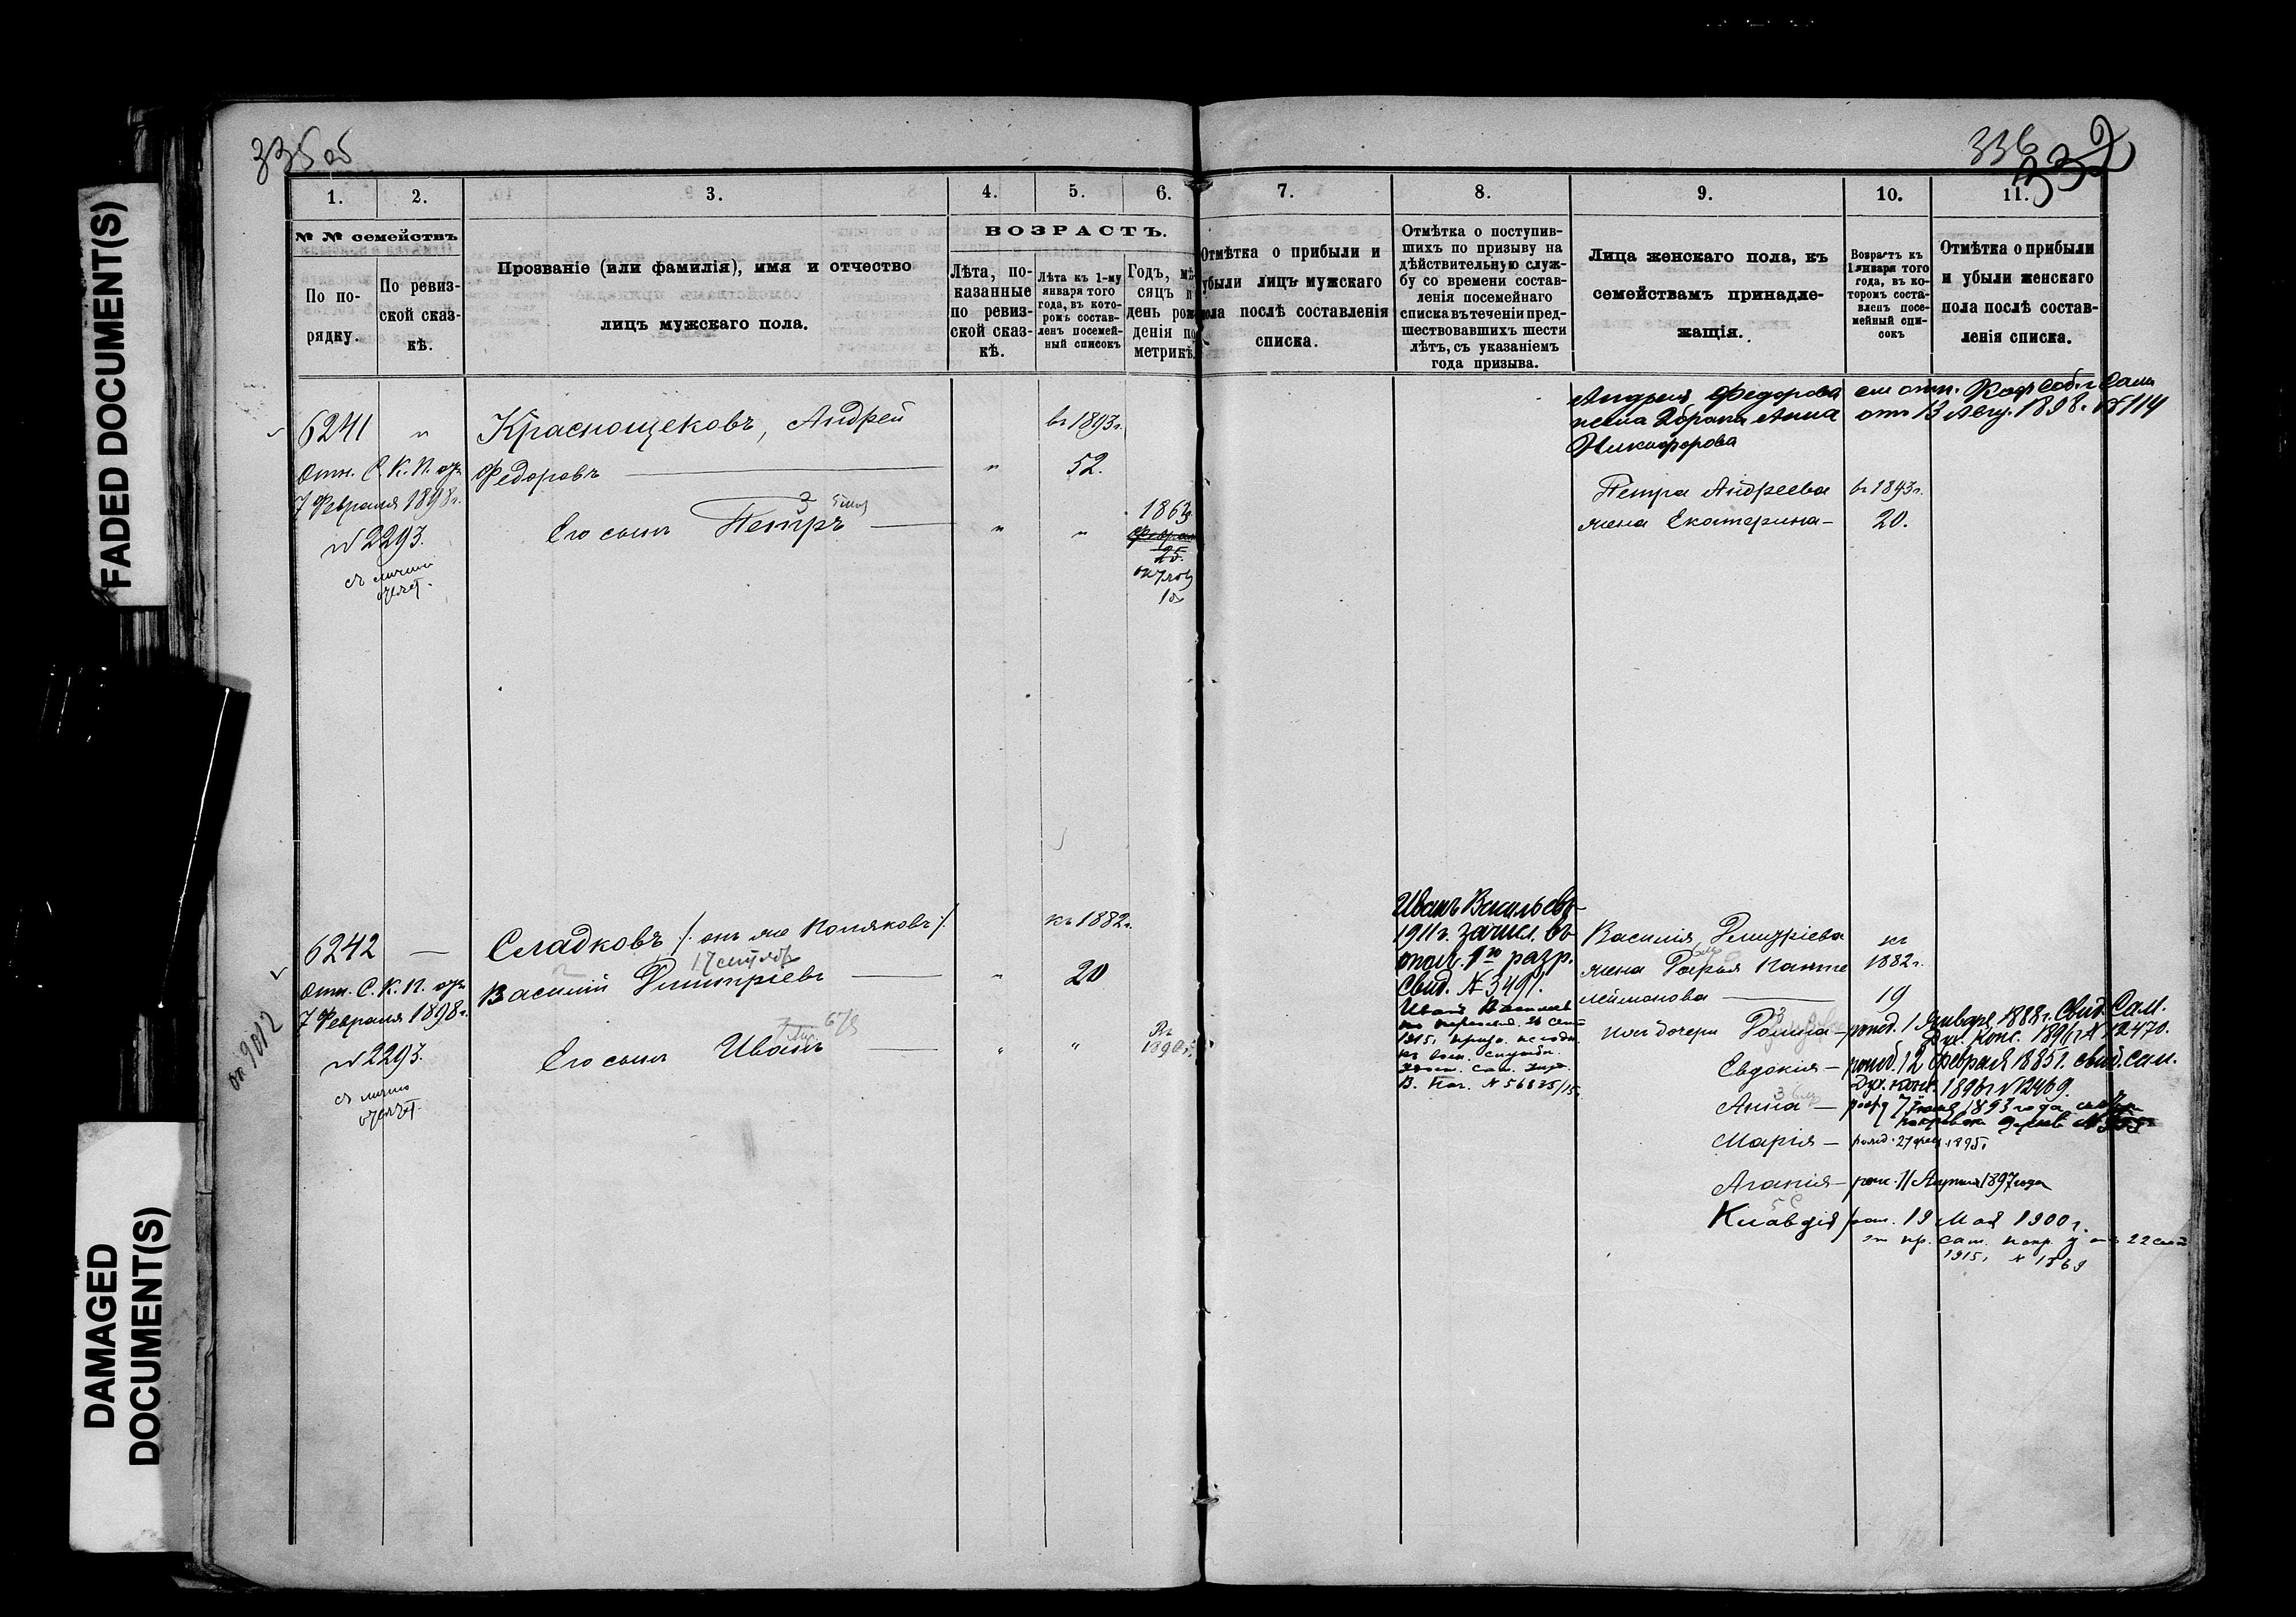 FADED DOCUMENT(S)
DAMAGED
DOCUMENT(S)
335 об
336
332
1.
2.
3.
4.
5.
6.
7.
8.
9.
10.
11.
№ № семействъ
По по-
рядку.
По ревиз-
ской сказ-
кѣ.
Прозваніе (или фамилія), имя и отчество
лицъ мужскаго пола.
ВОЗРАСТЪ.
Лѣта, по-
казанные
по ревиз-
ской сказ-
кѣ.
Лѣта къ 1-му
января того
года, въ кото-
ромъ состав-
ленъ посемей-
ный списокъ
Годъ, мѣ-
сяцъ и
день рож-
денія по
метрикѣ.
Отмѣтка о прибыли и
убыли лицъ мужскаго
пола послѣ составленія
списка.
Отмѣтка о поступив-
шихъ по призыву на
дѣйствительную служ-
бу со времени состав-
ленія посемейнаго
списка въ теченіи пред-
шествовавшихъ шести
лѣтъ, съ указаніемъ
года призыва.
Лица женскаго пола, къ
семействамъ принадле-
жащія.
Возрастъ къ
1 января того
года, въ ко-
торомъ соста-
вленъ посе-
мейный спи-
сокъ
Отмѣтка о прибыли
и убыли женскаго
пола послѣ состав-
ленія списка.
6241
Отн. С. К. П. отъ
7 Февраля 1898 г.
№ 2293.
Краснощековъ, Андрей
Федоровъ
въ 1893 г.
52.
Его сынъ Петръ
1863
25.
Андрея Федорова
жена 2 брака Анна
Никифорова
отъ 13 Авгу. 1898 г. № 114
Петра Андреева
жена Екатерина
въ 1893 г.
20.
6242
Отн. С. К. П. отъ
7 Февраля 1898 г.
№ 2293.
оп 9012
Сладковъ /: онъ же Поляковъ :/
Василій Дмитріевъ
къ 1882 г.
20
Его сынъ Иванъ
Иванъ Васильевъ
1911 г. зачисл. въ
опол. 1го разр.
Свид. № 3491.
В. Нач. № 56835/15
Василія Дмитріева
жена Дарья Панте
леймонова
къ
1882 г.
19
ихъ дочери
рожд. 1 Января 1888 г. Свид. Сам.
Дух. Конс. 1896 г. № 12470.
Евдокия — рожд. 12 Февраля 1885 г. свид. Сам.
Дух. конс. 1896 г. № 12469.
Анна — 1893 года
Марія — рожд. 1895 г.
Агапія — рож. 11 Апрѣля 1897 года
Клавдія рож. 19 Мая 1900 г.
1915 г. № 1569